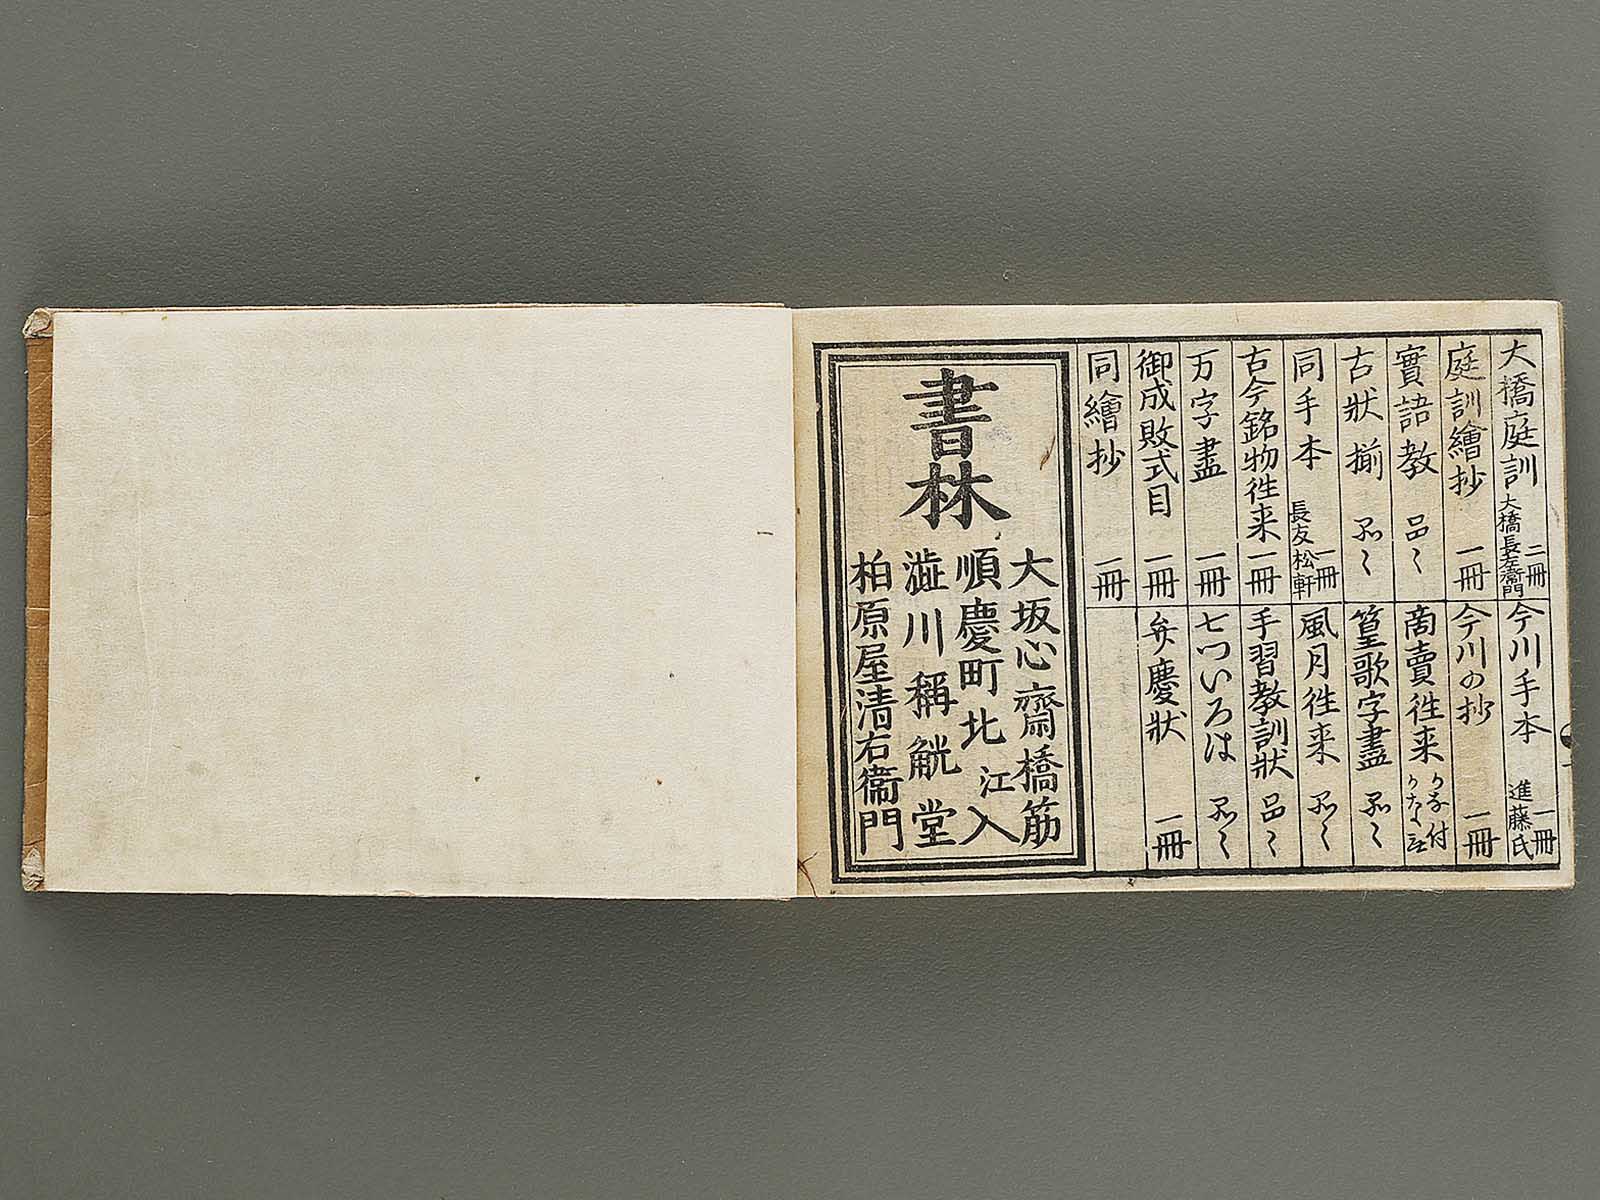 大橋庭訓 大橋長左衛門 二冊
庭訓繪抄 一冊
實語教 品〻
古狀揃 品〻
同手本 長友松軒 一冊
古今銘物徃来 一冊
万字盡 一冊
御成敗式目 一冊
同繪抄 一冊
今川手本 進藤氏 一冊
今川の抄 一冊
商賣徃来
篁歌字盡 品〻
風月徃来 品〻
手習教訓狀 品〻
七ついろは 品〻
弁慶狀 一冊
書林
大坂心齋橋筋
順慶町北江入
澁川稱觥堂
柏原屋清右衛門